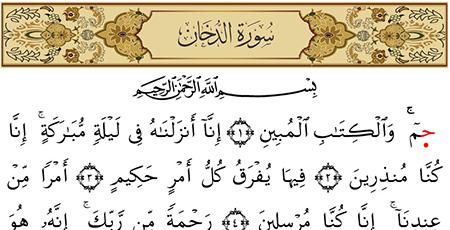 سُورَةُ الدُّخَانِ
بِسْمِ اللَّهِ الرَّحْمَٰنِ الرَّحِيمِ
جمٓ ۚ وَٱلْكِتَٰبِ ٱلْمُبِينِ ﴿١﴾ إِنَّآ أَنزَلْنَٰهُ فِى لَيْلَةٍ مُّبَٰرَكَةٍ ۚ إِنَّا
كُنَّا مُنذِرِينَ ﴿٢﴾ فِيهَا يُفْرَقُ كُلُّ أَمْرٍ حَكِيمٍ ﴿٣﴾ أَمْرًا مِّنْ
عِندِنَآ ۚ إِنَّا كُنَّا مُرْسِلِينَ ﴿٤﴾ رَحْمَةً مِّن رَّبِّكَ ۚ إِنَّهُۥ هُوَ